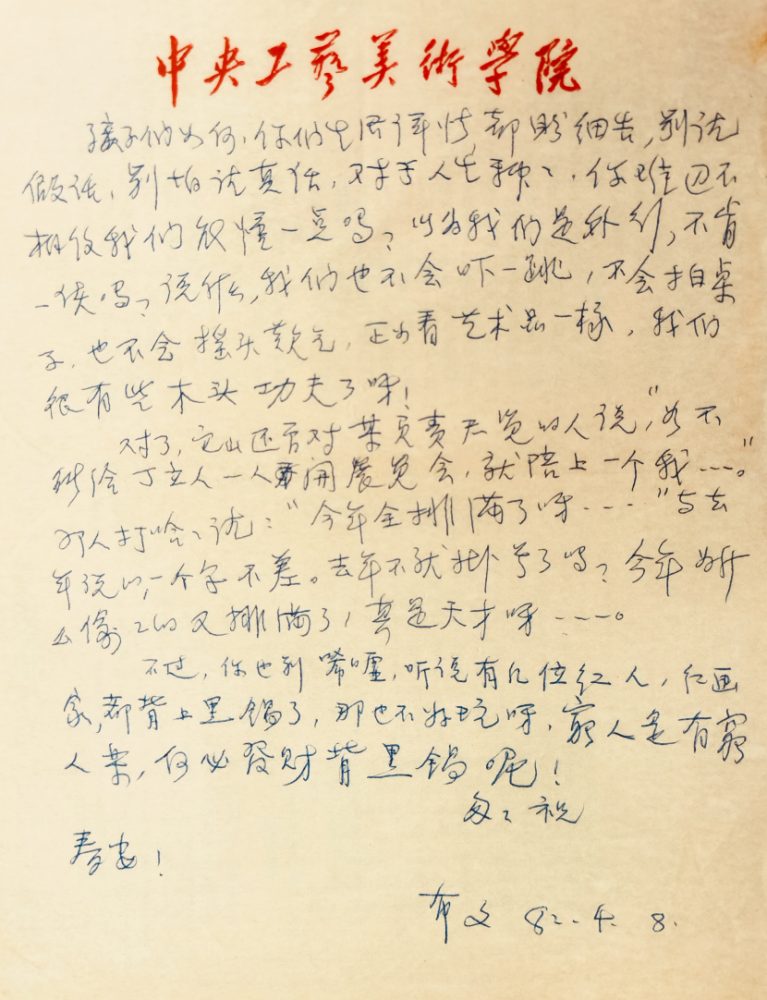 中央工艺美術學院
孩子们如何,你们生活详情都盼细告,别说
假话,别怕说真话,对于人生种々,你难道不
相信我们能懂一点吗?以为我们是外行,不肯
一谈吗?说什么,我们也不会吓一跳,不会拍桌
子,也不会摇头叹气,正如看艺术品一样,我们
很有些木头功夫了呀!
对了,它山还曾对某负责展览的人说,"如不
能给丁立人一人开展览会,就陪上一个我……。"
那人打哈々说:"今年全排满了呀……"与去
年说的,一个字不差。去年不就挂号了吗?今年
又排满了,真是天才呀……。
不过,你也别唏嘘,听说有几位红人,红画
家,都背上黑锅了,那也不好玩呀,窮人是有窮
人乐,何必發财背黑锅呢!
匆々祝
春安!
布文 82.4.8.